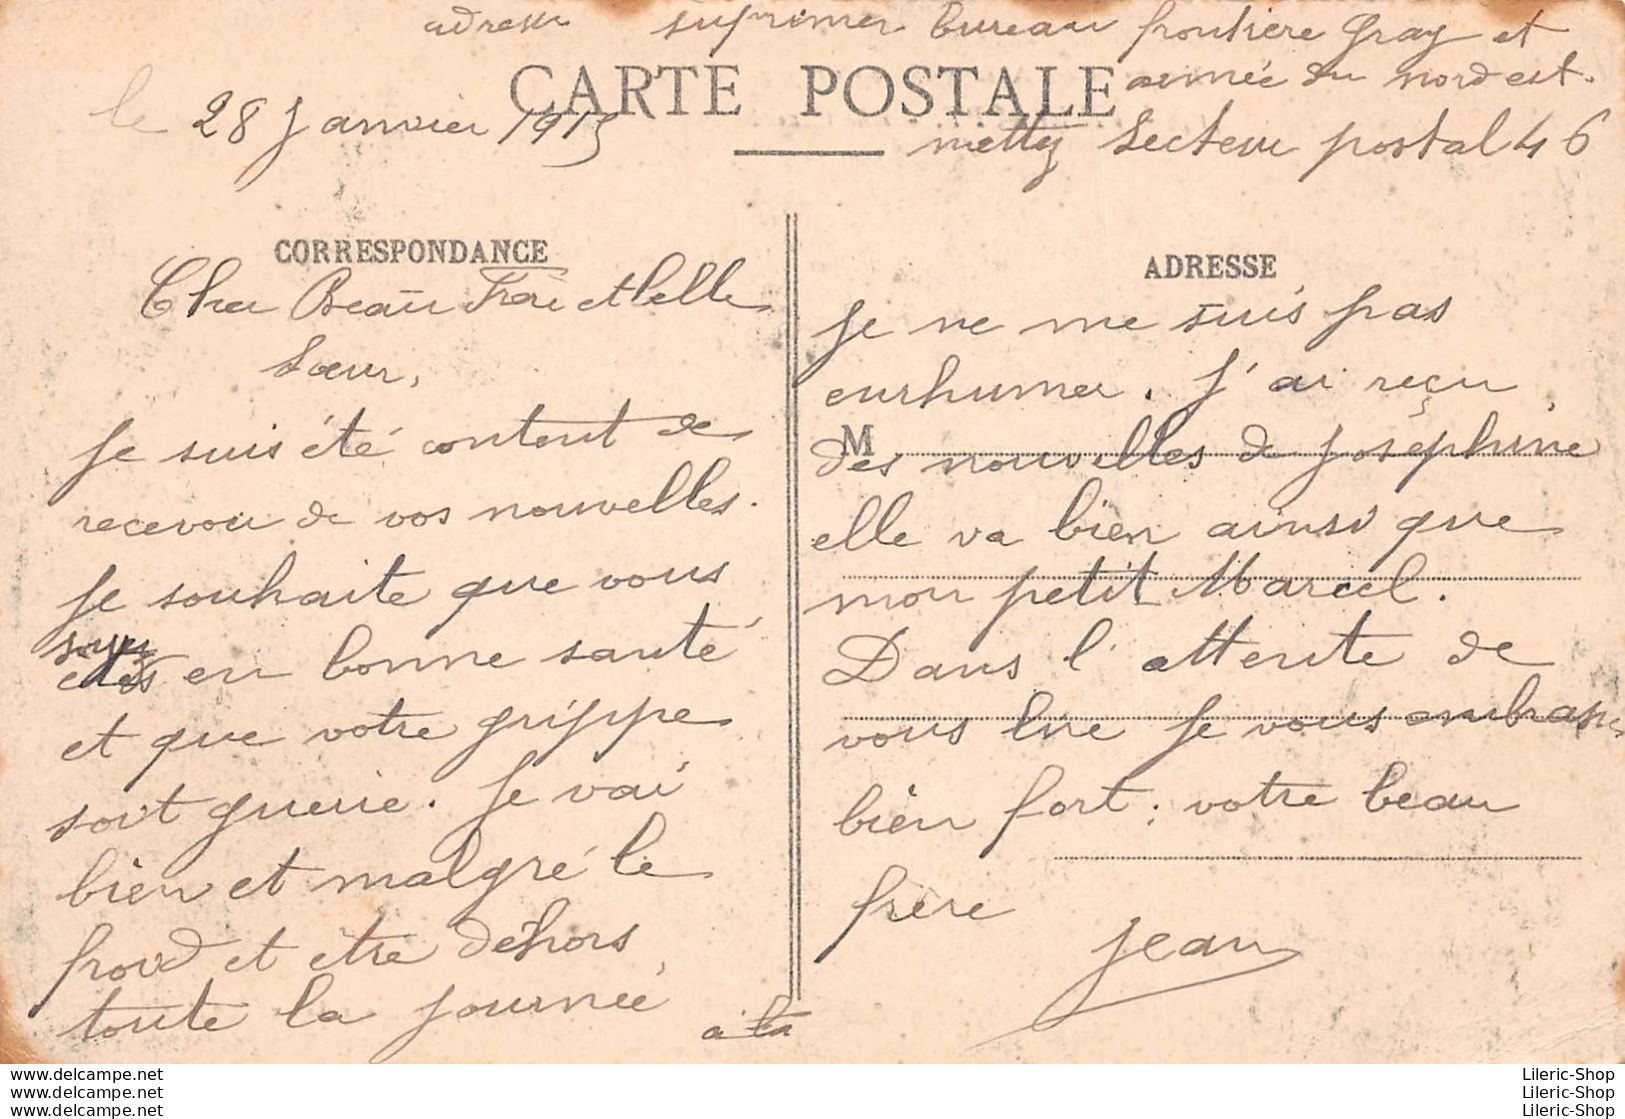 adresse suprimer bureau frontière Gray et
armée du nord est.
CARTE POSTALE
le 28 Janvier 1915
mettez Secteur postal 46
CORRESPONDANCE
Cher Beau Frère et belle
Sœur,
Je suis été content de
recevoir de vos nouvelles.
Je souhaite que vous
soyez
en bonne santé
et que votre grippe
soit guerie. Je vai
bien et malgré le
froid et etre déhors
toute la journée
a la
ADRESSE
je ne me suis pas
enrhumer. J'ai reçu
M
des nouvelles de Joséphine
elle va bien ainsi que
mon petit Marcel.
Dans l'attente de
vous lire Je vous embrasse
bien fort. votre beau
frère
Jean
www.delcampe.net
www.delcampe.net
www.delcampe.net
Lileric-Shop
Lileric-Shop
Lileric-Shop